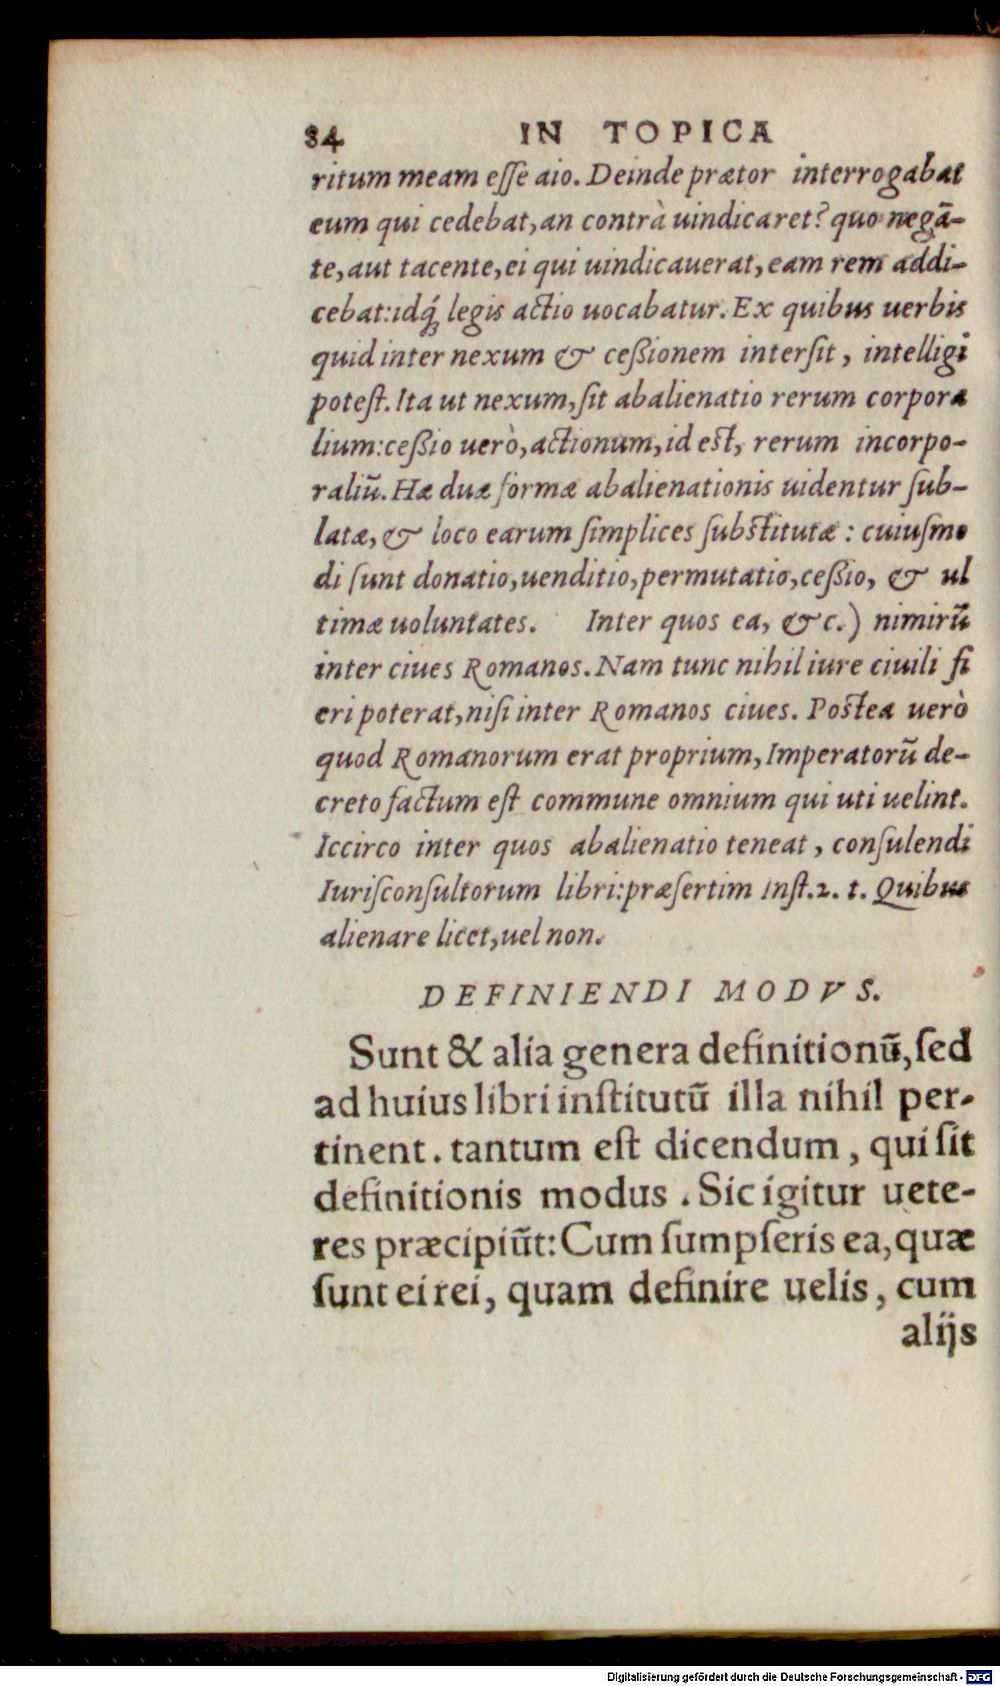 84 IN TOPICA
ritum meam eſſe aio. Deinde prætor interrogabat
eum qui cedebat, an contrà uindicaret? quo negā-
te, aut tacente, ei qui uindicauerat, eam rem addi-
cebat: idq́; legis actio uocabatur. Ex quibus uerbis
quid inter nexum & ceßionem interſit, intelligi
poteſt. Ita ut nexum, ſit abalienatio rerum corpora
lium: ceßio uerò, actionum, id eſt, rerum incorpo-
raliū. Hæ duæ formæ abalienationis uidentur ſub-
latæ, & loco earum ſimplices ſubſtitutæ: cuiuſmo
di ſunt donatio, uenditio, permutatio, ceßio, & ul
timæ uoluntates. Inter quos ea, &c.) nimirū
inter ciues Romanos. Nam tunc nihil iure ciuili fi
eri poterat, niſi inter Romanos ciues. Poſtea uerò
quod Romanorum erat proprium, Imperatorū de-
creto factum eſt commune omnium qui uti uelint.
Iccirco inter quos abalienatio teneat, conſulendi
Iuriſconſultorum libri: præſertim Inſt. 2. t. Quibus
alienare licet, uel non.
DEFINIENDI MODVS.
Sunt & alia genera definitionū, ſed
ad huius libri inſtitutū illa nihil per-
tinent. tantum eſt dicendum, qui ſit
definitionis modus. Sic igitur uete-
res præcipiūt: Cum ſumpſeris ea, quæ
ſunt ei rei, quam definire uelis, cum
alijs
Digitalisierung gefördert durch die Deutsche Forschungsgemeinschaft - DFG